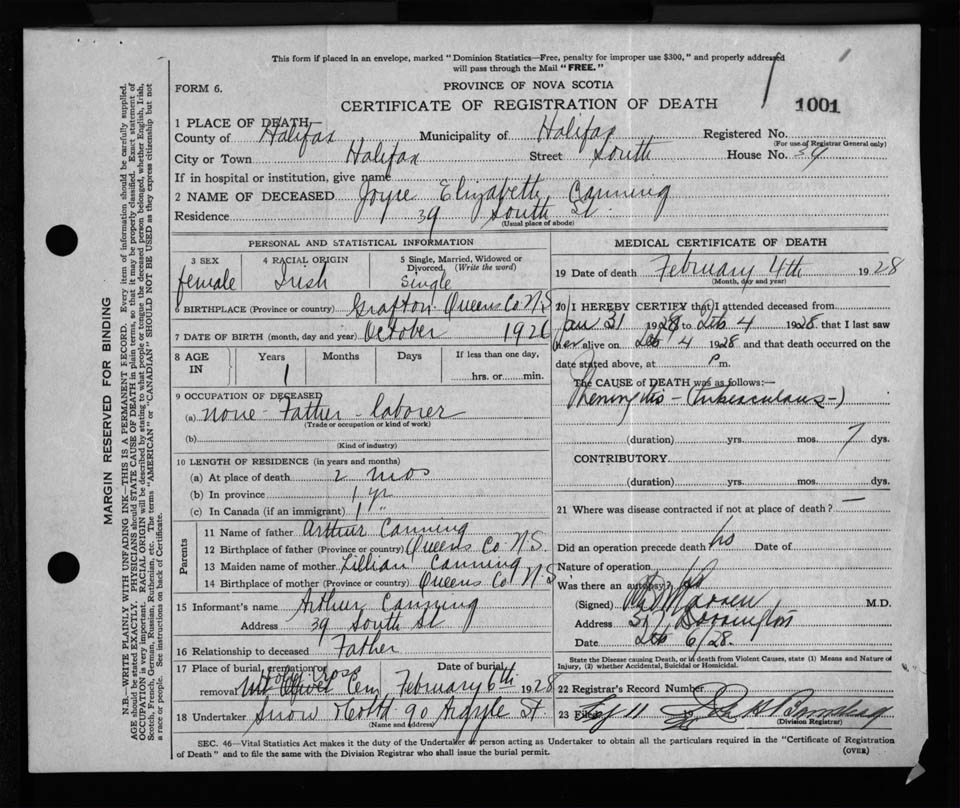 This form if placed in an envelope, marked "Dominion Statistics—Free, penalty for improper use $300," and properly addressed
will pass through the Mail "FREE."
FORM 6.
PROVINCE OF NOVA SCOTIA
CERTIFICATE OF REGISTRATION OF DEATH
1001
1 PLACE OF DEATH
County of Halifax Municipality of Halifax Registered No.
(For use of Registrar General only)
City or Town Halifax Street South House No. 39
If in hospital or institution, give name
2 NAME OF DECEASED Joyce Elizabeth Canning
Residence 39 South St.
(Usual place of abode)
PERSONAL AND STATISTICAL INFORMATION
3 SEX 4 RACIAL ORIGIN 5 Single, Married, Widowed or
Divorced, (Write the word)
female Irish Single
6 BIRTHPLACE (Province or country) Grafton Queens Co N.S
7 DATE OF BIRTH (month, day and year) October 1926
8 AGE IN Years Months Days If less than one day,
1 hrs. or min.
9 OCCUPATION OF DECEASED
(a) none - Father - laborer
(Trade or occupation or kind of work)
(b)
(Kind of industry)
10 LENGTH OF RESIDENCE (in years and months)
(a) At place of death 2 mos
(b) In province 1 yr
(c) In Canada (if an immigrant) 1 "
Parents
11 Name of father Arthur Canning
12 Birthplace of father (Province or country) Queens Co N.S.
13 Maiden name of mother Lillian Canning
14 Birthplace of mother (Province or country) Queens Co N.S
15 Informant's name Arthur Canning
Address 39 South St
16 Relationship to deceased Father
17 Place of burial, cremation or Date of burial
Holy Cross
removal Mt Olivet Cem February 6th 1928
18 Undertaker Snow & Co Ltd 90 Argyle St
(Name and address)
MEDICAL CERTIFICATE OF DEATH
19 Date of death February 4th 1928
(Month, day and year)
20 I HEREBY CERTIFY that I attended deceased from
Jan 31 1928 to Feb 4 1928. that I last saw
her alive on Feb 4 1928 and that death occurred on the
date stated above, at P m.
The CAUSE of DEATH was as follows:—
Meningitis - (tuberculous-)
(duration) yrs. mos. 7 dys.
CONTRIBUTORY
(duration) yrs. mos. dys.
21 Where was disease contracted if not at place of death? —
Did an operation precede death? no Date of
Nature of operation
Was there an autopsy? no
(Signed) M.D.
Address
Date Feb 6/28.
State the Disease causing Death, or in death from Violent Causes, state (1) Means and Nature of
Injury, (2) whether Accidental, Suicidal or Homicidal.
22 Registrar's Record Number
23 Filed 11 19
(Division Registrar)
SEC. 46—Vital Statistics Act makes it the duty of the Undertaker or person acting as Undertaker to obtain all the particulars required in the "Certificate of Registration
of Death" and to file the same with the Division Registrar who shall issue the burial permit.
(OVER)
MARGIN RESERVED FOR BINDING
N.B.—WRITE PLAINLY WITH UNFADING INK—THIS IS A PERMANENT RECORD. Every item of information should be carefully supplied.
AGE should be stated EXACTLY. PHYSICIANS should STATE CAUSE OF DEATH in plain terms, so that it may be properly classified. Exact statement of
OCCUPATION is very important. RACIAL ORIGIN will be described by stating to what people or tongue the deceased person belonged, whether English, Irish,
Scotch, French, German, Russian, Ruthenian, etc. The terms "AMERICAN" or "CANADIAN" SHOULD NOT BE USED as they express citizenship but not
a race or people. See instructions on back of Certificate.